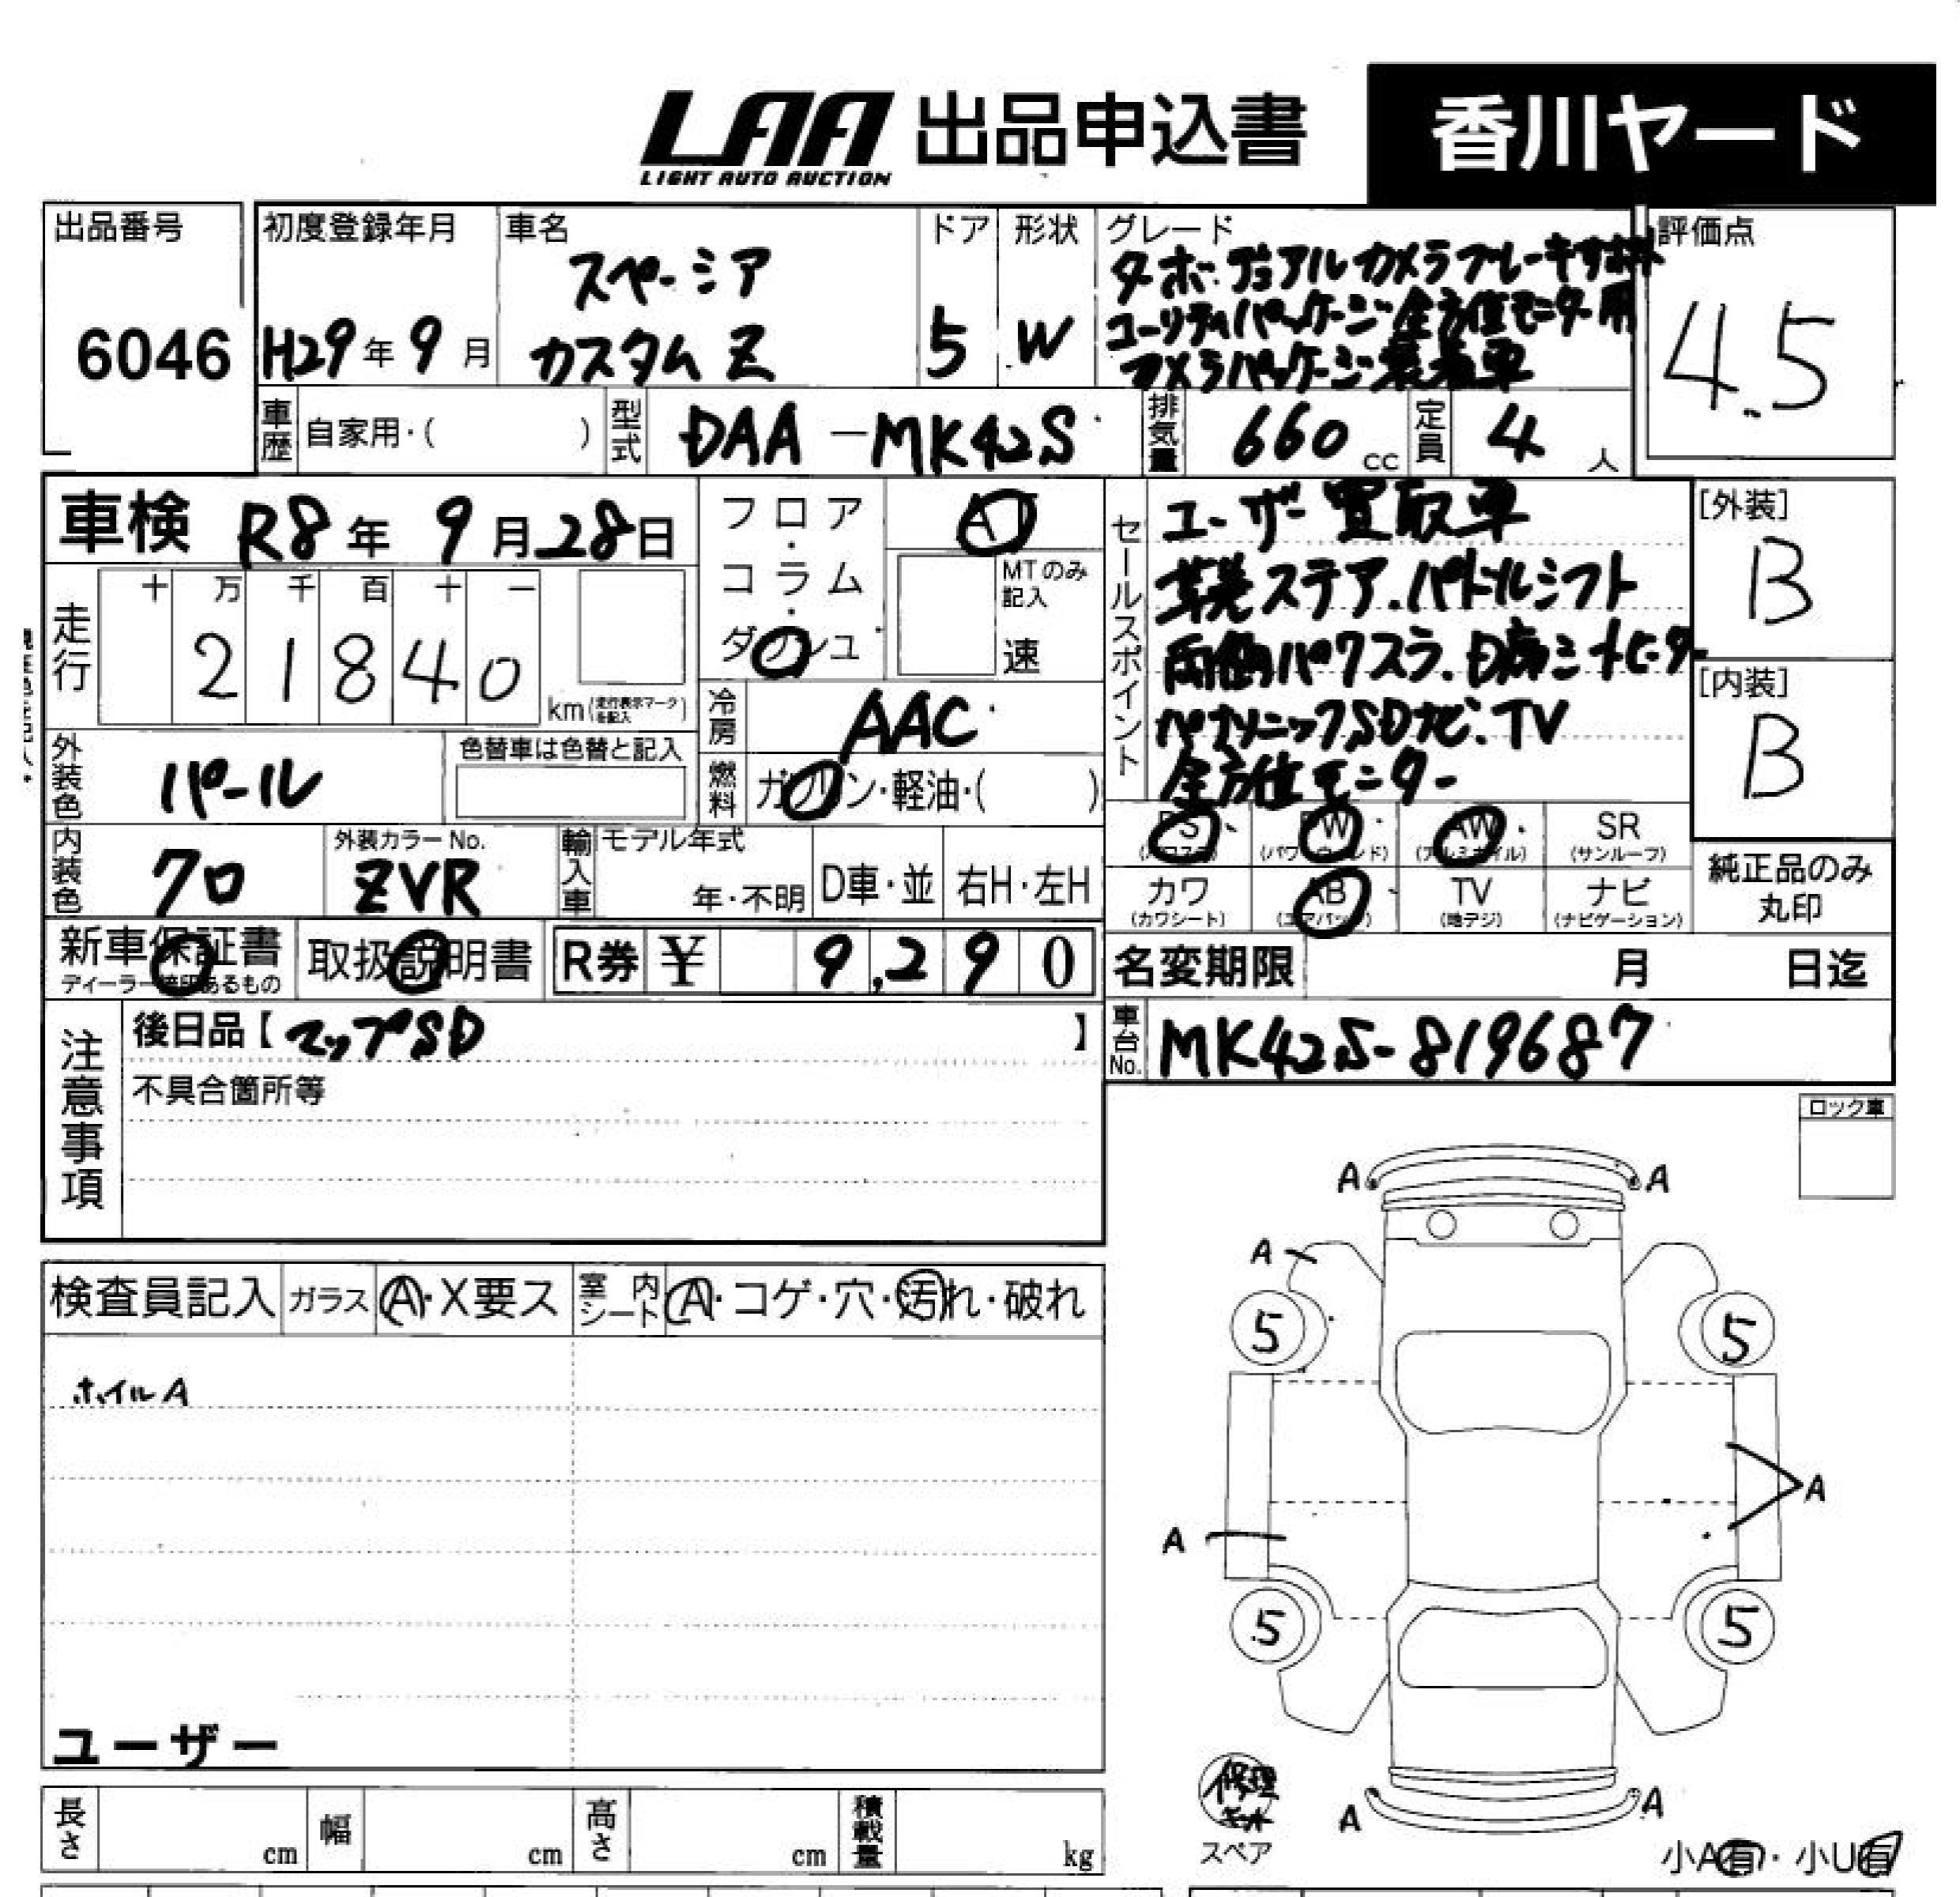 LAA 出品申込書 香川ヤード
LIGHT AUTO AUCTION
出品番号 初度登録年月 車名 ドア 形状 グレード 評価点
6046 H29年9月 スペーシア カスタムZ 5 W 4.5
ターボ デュアルカメラブレーキサポート
ユーリティパッケージ 全方位モニター用
カメラパッケージ装着車
車歴 自家用・( ) 型式 DAA-MK42S 排気量 660 cc 定員 4 人
車検 R8年 9月28日 フロア・コラム・ダッシュ AT
MTのみ記入 速
走行 十 万 千 百 十 一
2 1 8 4 0 km(走行表示マークを記入)
冷房 AAC
外装色 パール 色替車は色替と記入
燃料 ガソリン・軽油・( )
セールスポイント
ユーザー買取車
革巻ステア.パドルシフト
両側パワスラ.
パナソニックSDナビ.TV
全方位モニター
[外装] B
[内装] B
PS(パワステ) PW(パワーウィンド) AW(アルミホイル) SR(サンルーフ)
カワ(カワシート) AB(エアバッグ) TV(地デジ) ナビ(ナビゲーション)
純正品のみ丸印
内装色 クロ 外装カラーNo. ZVR 輸入車 モデル年式 年・不明 D車・並 右H・左H
新車保証書 取扱説明書 R券 ¥ 9,290
名変期限 月 日迄
車台No. MK42S-819687
注意事項
後日品【マップSD】
不具合箇所等
ロック車
検査員記入 ガラス A・X要ス 室内シート A・コゲ・穴・汚れ・破れ
ホイルA
ユーザー
A A
A
5 5
A
A
5 5
A A
修理キット
スペア
小A有・小U有
長さ cm 幅 cm 高さ cm 積載量 kg